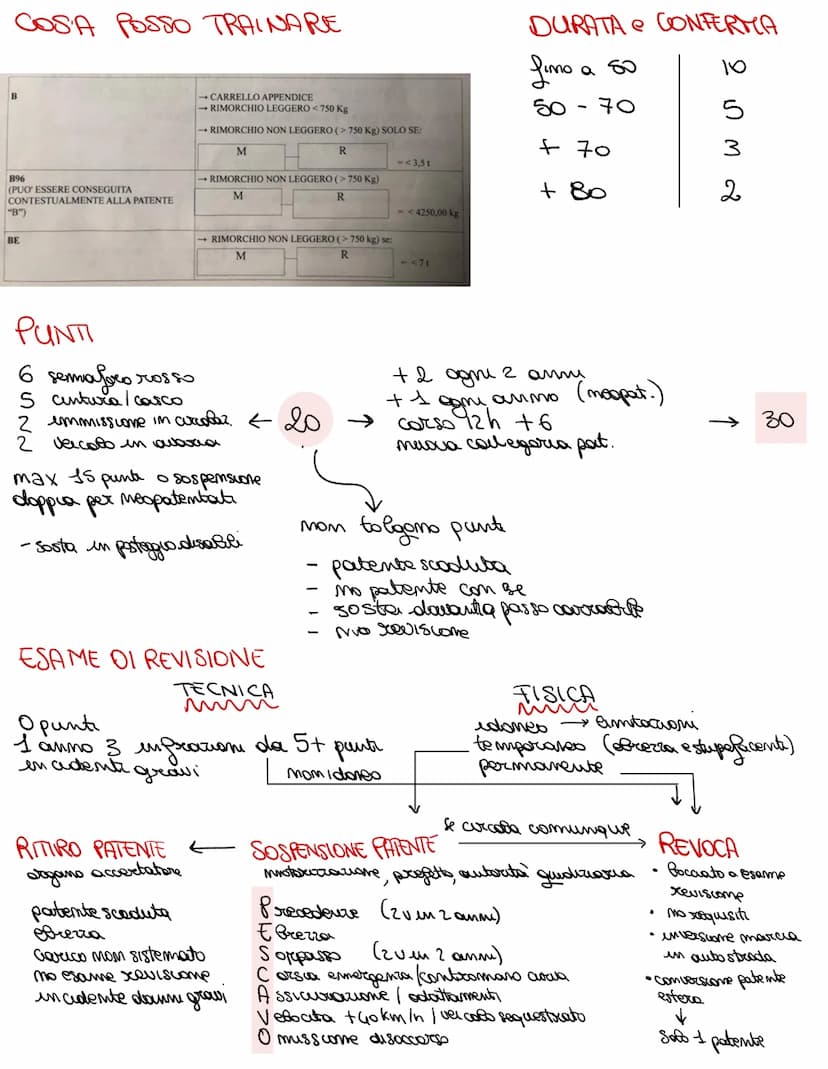 COSA POSSO TRAINARE
B
→ CARRELLO APPENDICE
→ RIMORCHIO LEGGERO < 750 Kg
→ RIMORCHIO NON LEGGERO ( > 750 Kg) SOLO SE:
M R
= < 3,5 t
B96
(PUO' ESSERE CONSEGUITA
CONTESTUALMENTE ALLA PATENTE
"B")
→ RIMORCHIO NON LEGGERO ( > 750 Kg)
M R
= < 4250,00 kg
BE
→ RIMORCHIO NON LEGGERO ( > 750 kg) se:
M R
= < 7 t
DURATA e CONFERMA
fino a 50 10
50 - 70 5
+ 70 3
+ 80 2
PUNTI
6 semaforo rosso
5 cintura / casco
2 immissione in circolaz.
2 veicolo in
max 15 punti o sospensione
doppia per neopatentati
- sosta in posteggio disabili
← 20 →
+ 2 ogni 2 anni
+ 1 ogni anno (neopat.)
corso 12h + 6
nuova categoria pat.
→ 30
non tolgono punti
- patente scaduta
- no patente con se
- sosta davanti a passo carrabile
- no revisione
ESAME DI REVISIONE
TECNICA
0 punti
1 anno 3 infrazioni da 5+ punti
incidenti gravi
non idoneo
FISICA
idoneo → limitazioni
temporaneo (ebrezza e stupefacenti)
permanente
RITIRO PATENTE ←
organo accertatore
patente scaduta
ebrezza
carico non sistemato
no esame revisione
incidente danni gravi
SOSPENSIONE PATENTE
se circola comunque →
motorizzazione, prefetto, autorità giudiziaria
Precedenze (2V in 2 anni)
Ebrezza
Sorpasso (2V in 2 anni)
Corsia emergenza / contromano curva
Assicurazione / adattamenti
Velocità +40 km/h / veicolo sequestrato
Omissione di soccorso
REVOCA
• bocciato a esame
revisione
• no requisiti
• inversione marcia
in autostrada
• conversione patente
estera
↓
solo 1 patente